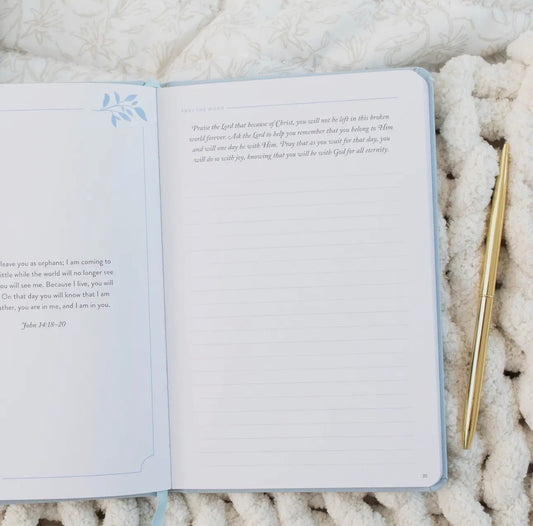 leave you as orphans; I am coming to
little while the world will no longer see
you will see me. Because I live, you will
On that day you will know that I am
father, you are in me, and I am in you.
John 14:18–20
PRAY THE WORD
Praise the Lord that because of Christ, you will not be left in this broken
world forever. Ask the Lord to help you remember that you belong to Him
and will one day be with Him. Pray that as you wait for that day, you
will do so with joy, knowing that you will be with God for all eternity.